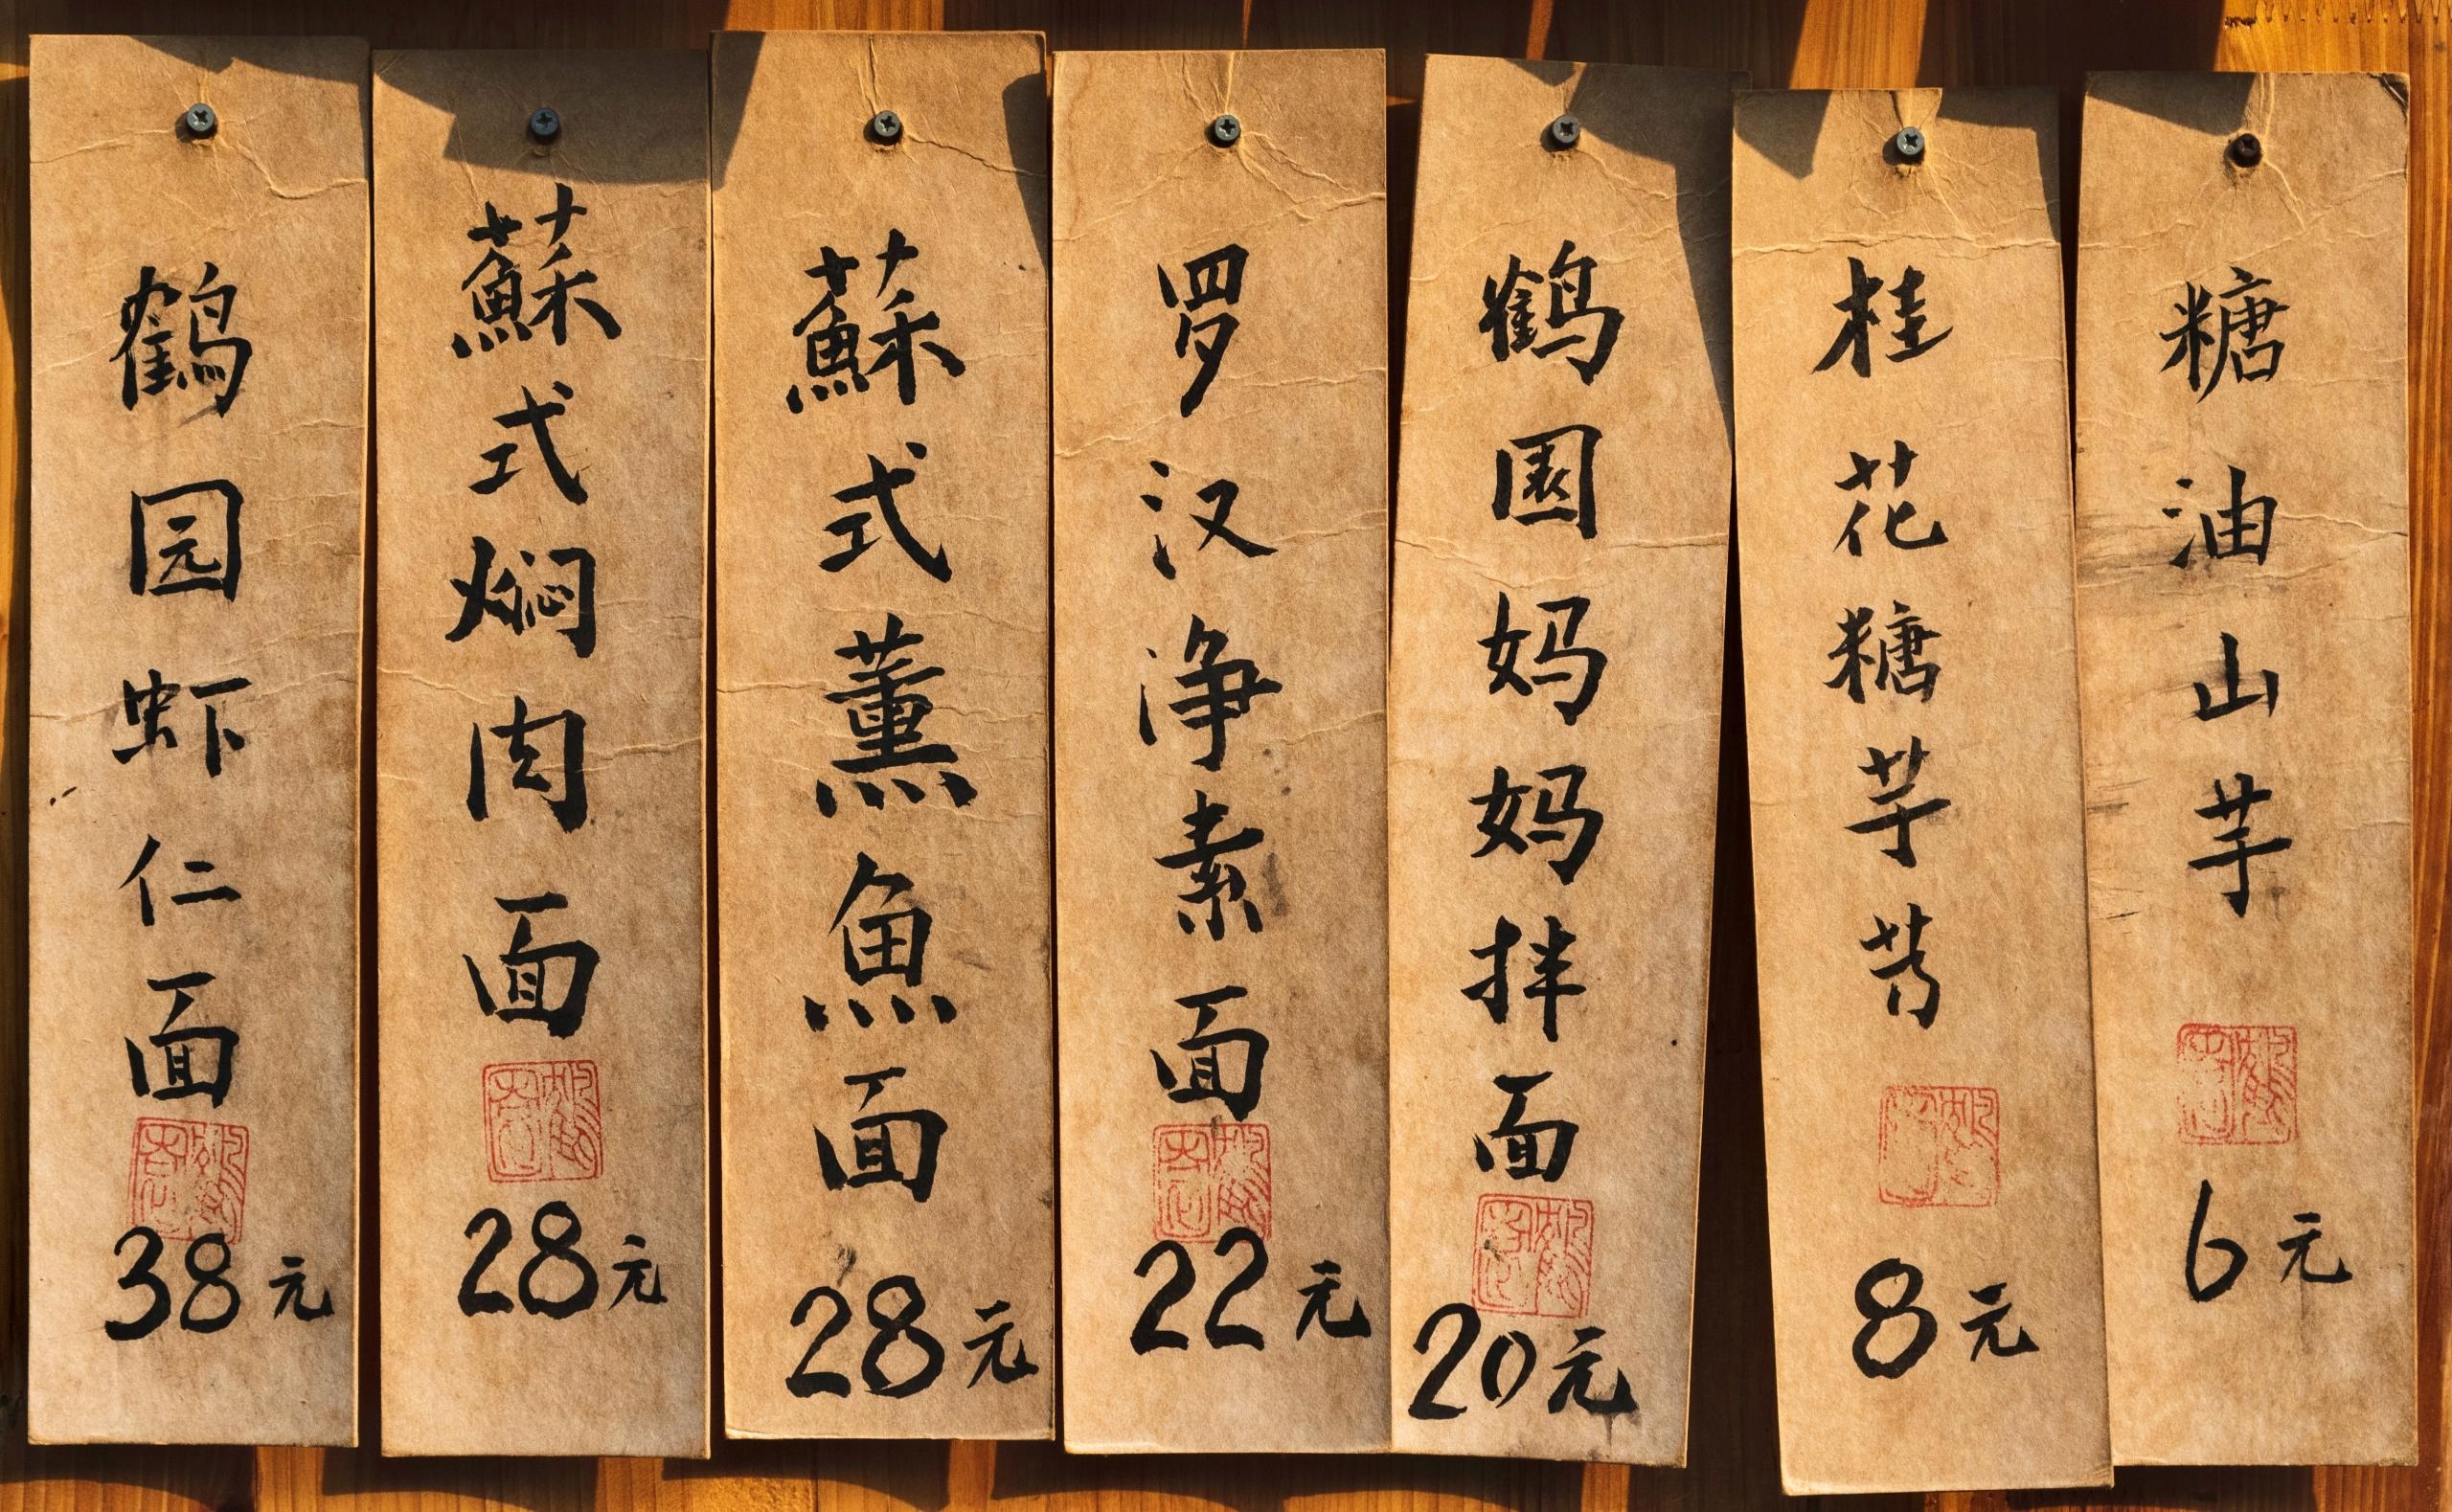 鹤园虾仁面
38元
蘇式焖肉面
28元
蘇式薰魚面
28元
罗汉净素面
22元
鹤園妈妈拌面
20元
桂花糖芋苦
8元
糖油山芋
6元